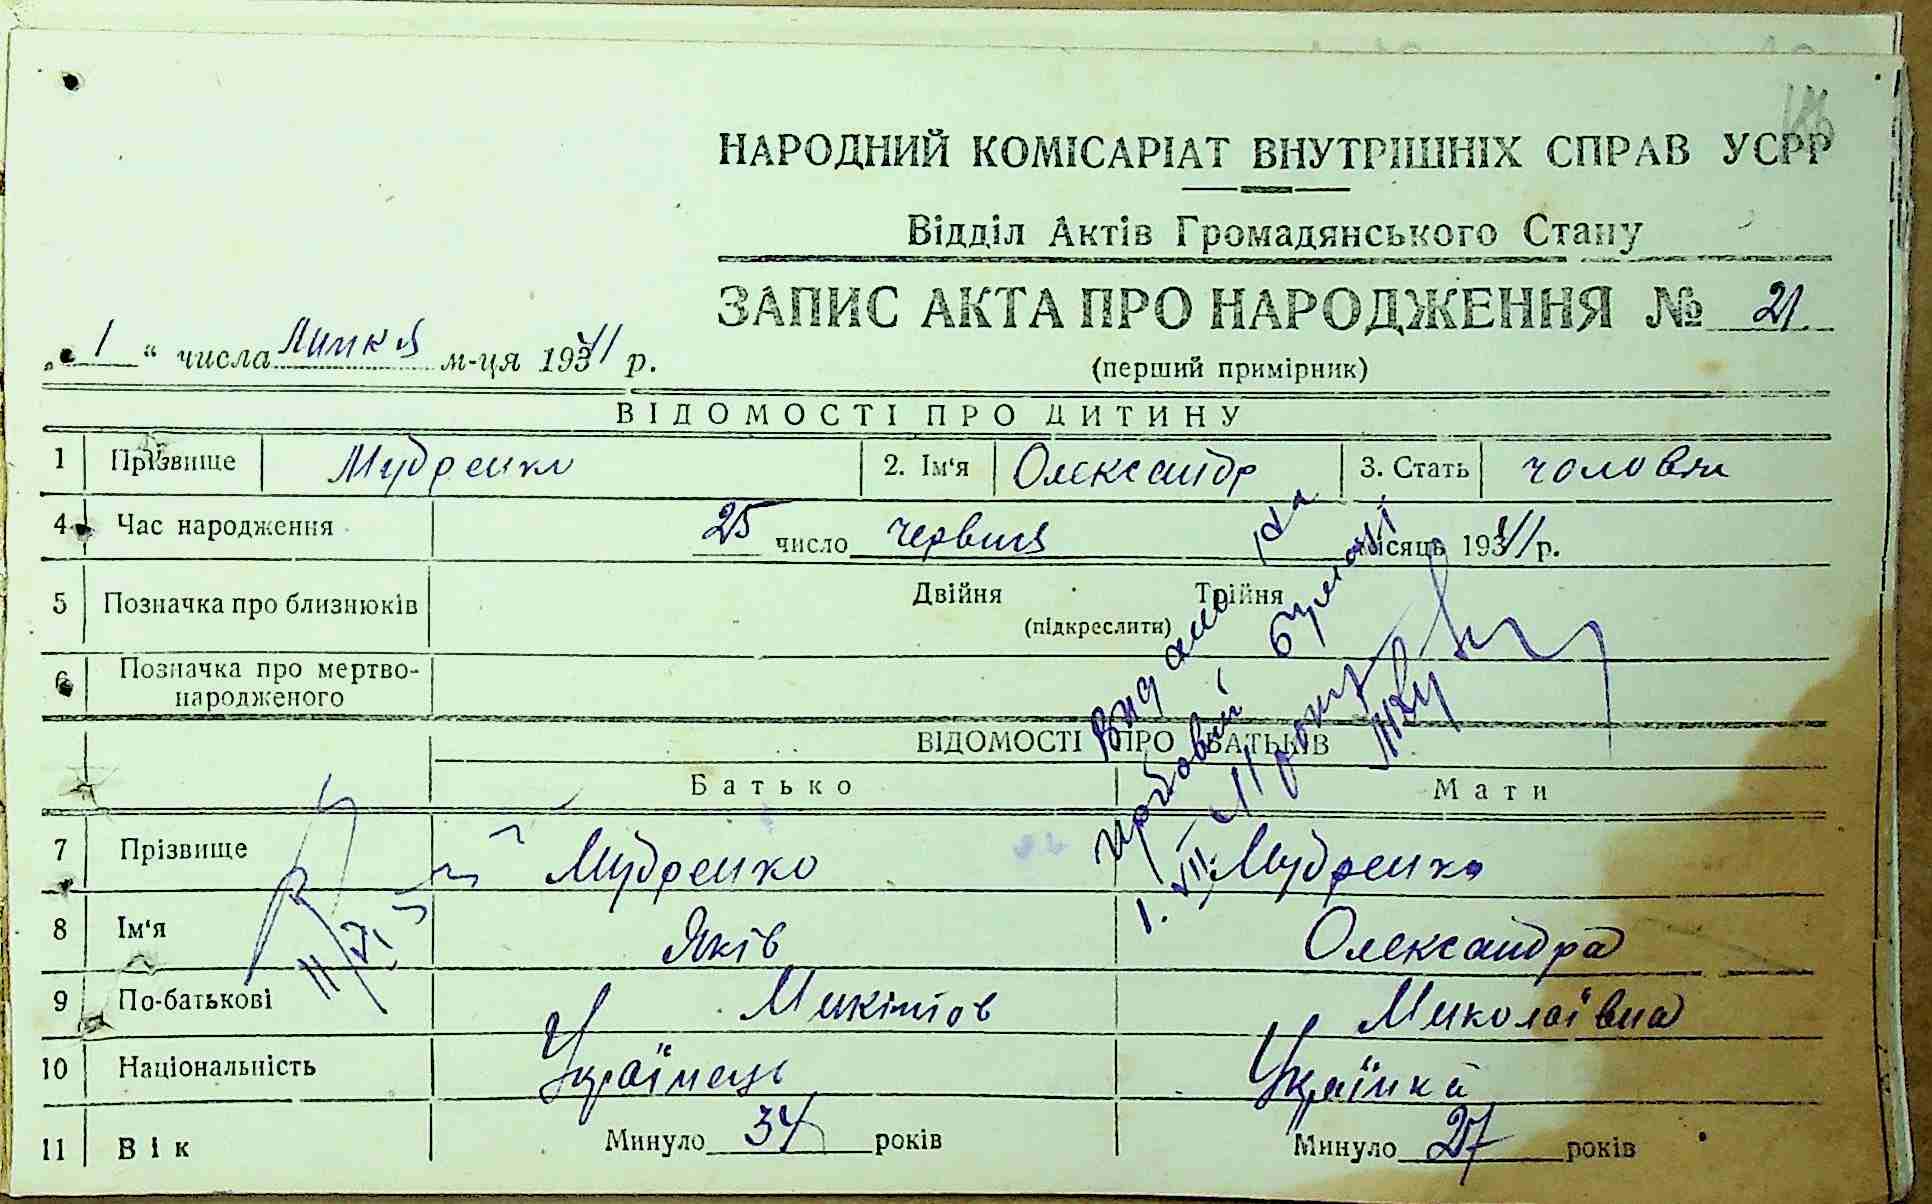 НАРОДНИЙ КОМІСАРІАТ ВНУТРІШНІХ СПРАВ УСРР
Відділ Актів Громадянського Стану
ЗАПИС АКТА ПРО НАРОДЖЕННЯ № 21
„ 1 “ числа Липня м-ця 1941 р.
(перший примірник)
ВІДОМОСТІ ПРО ДИТИНУ
1 Прізвище Мудренко 2. Ім‘я Олександр 3. Стать чоловіч
4 Час народження 25 число червня місяць 1941 р.
5 Позначка про близнюків Двійня Трійня
(підкреслити)
6 Позначка про мертво-
народженого
ВІДОМОСТІ ПРО БАТЬКІВ
Батько Мати
7 Прізвище Мудренко Мудренко
8 Ім‘я Яків Олександра
9 По-батькові Микітов Миколаївна
10 Національність Українець Українка
11 Вік Минуло 34 років Минуло 27 років
Видано
1.VII.